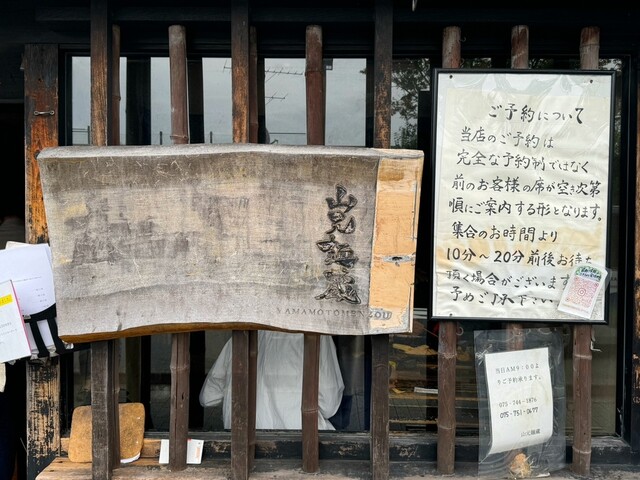 山元麺蔵
YAMAMOTOMENZOU
ご予約について
当店のご予約は
完全な予約制ではなく
前のお客様の席が空き次第
順にご案内する形となります。
集合のお時間より
10分〜20分前後お待ち
頂く場合がございます
予めご了承下さい
当日AM9:00よ
りご予約承ります。
075-751-0677
山元麺蔵